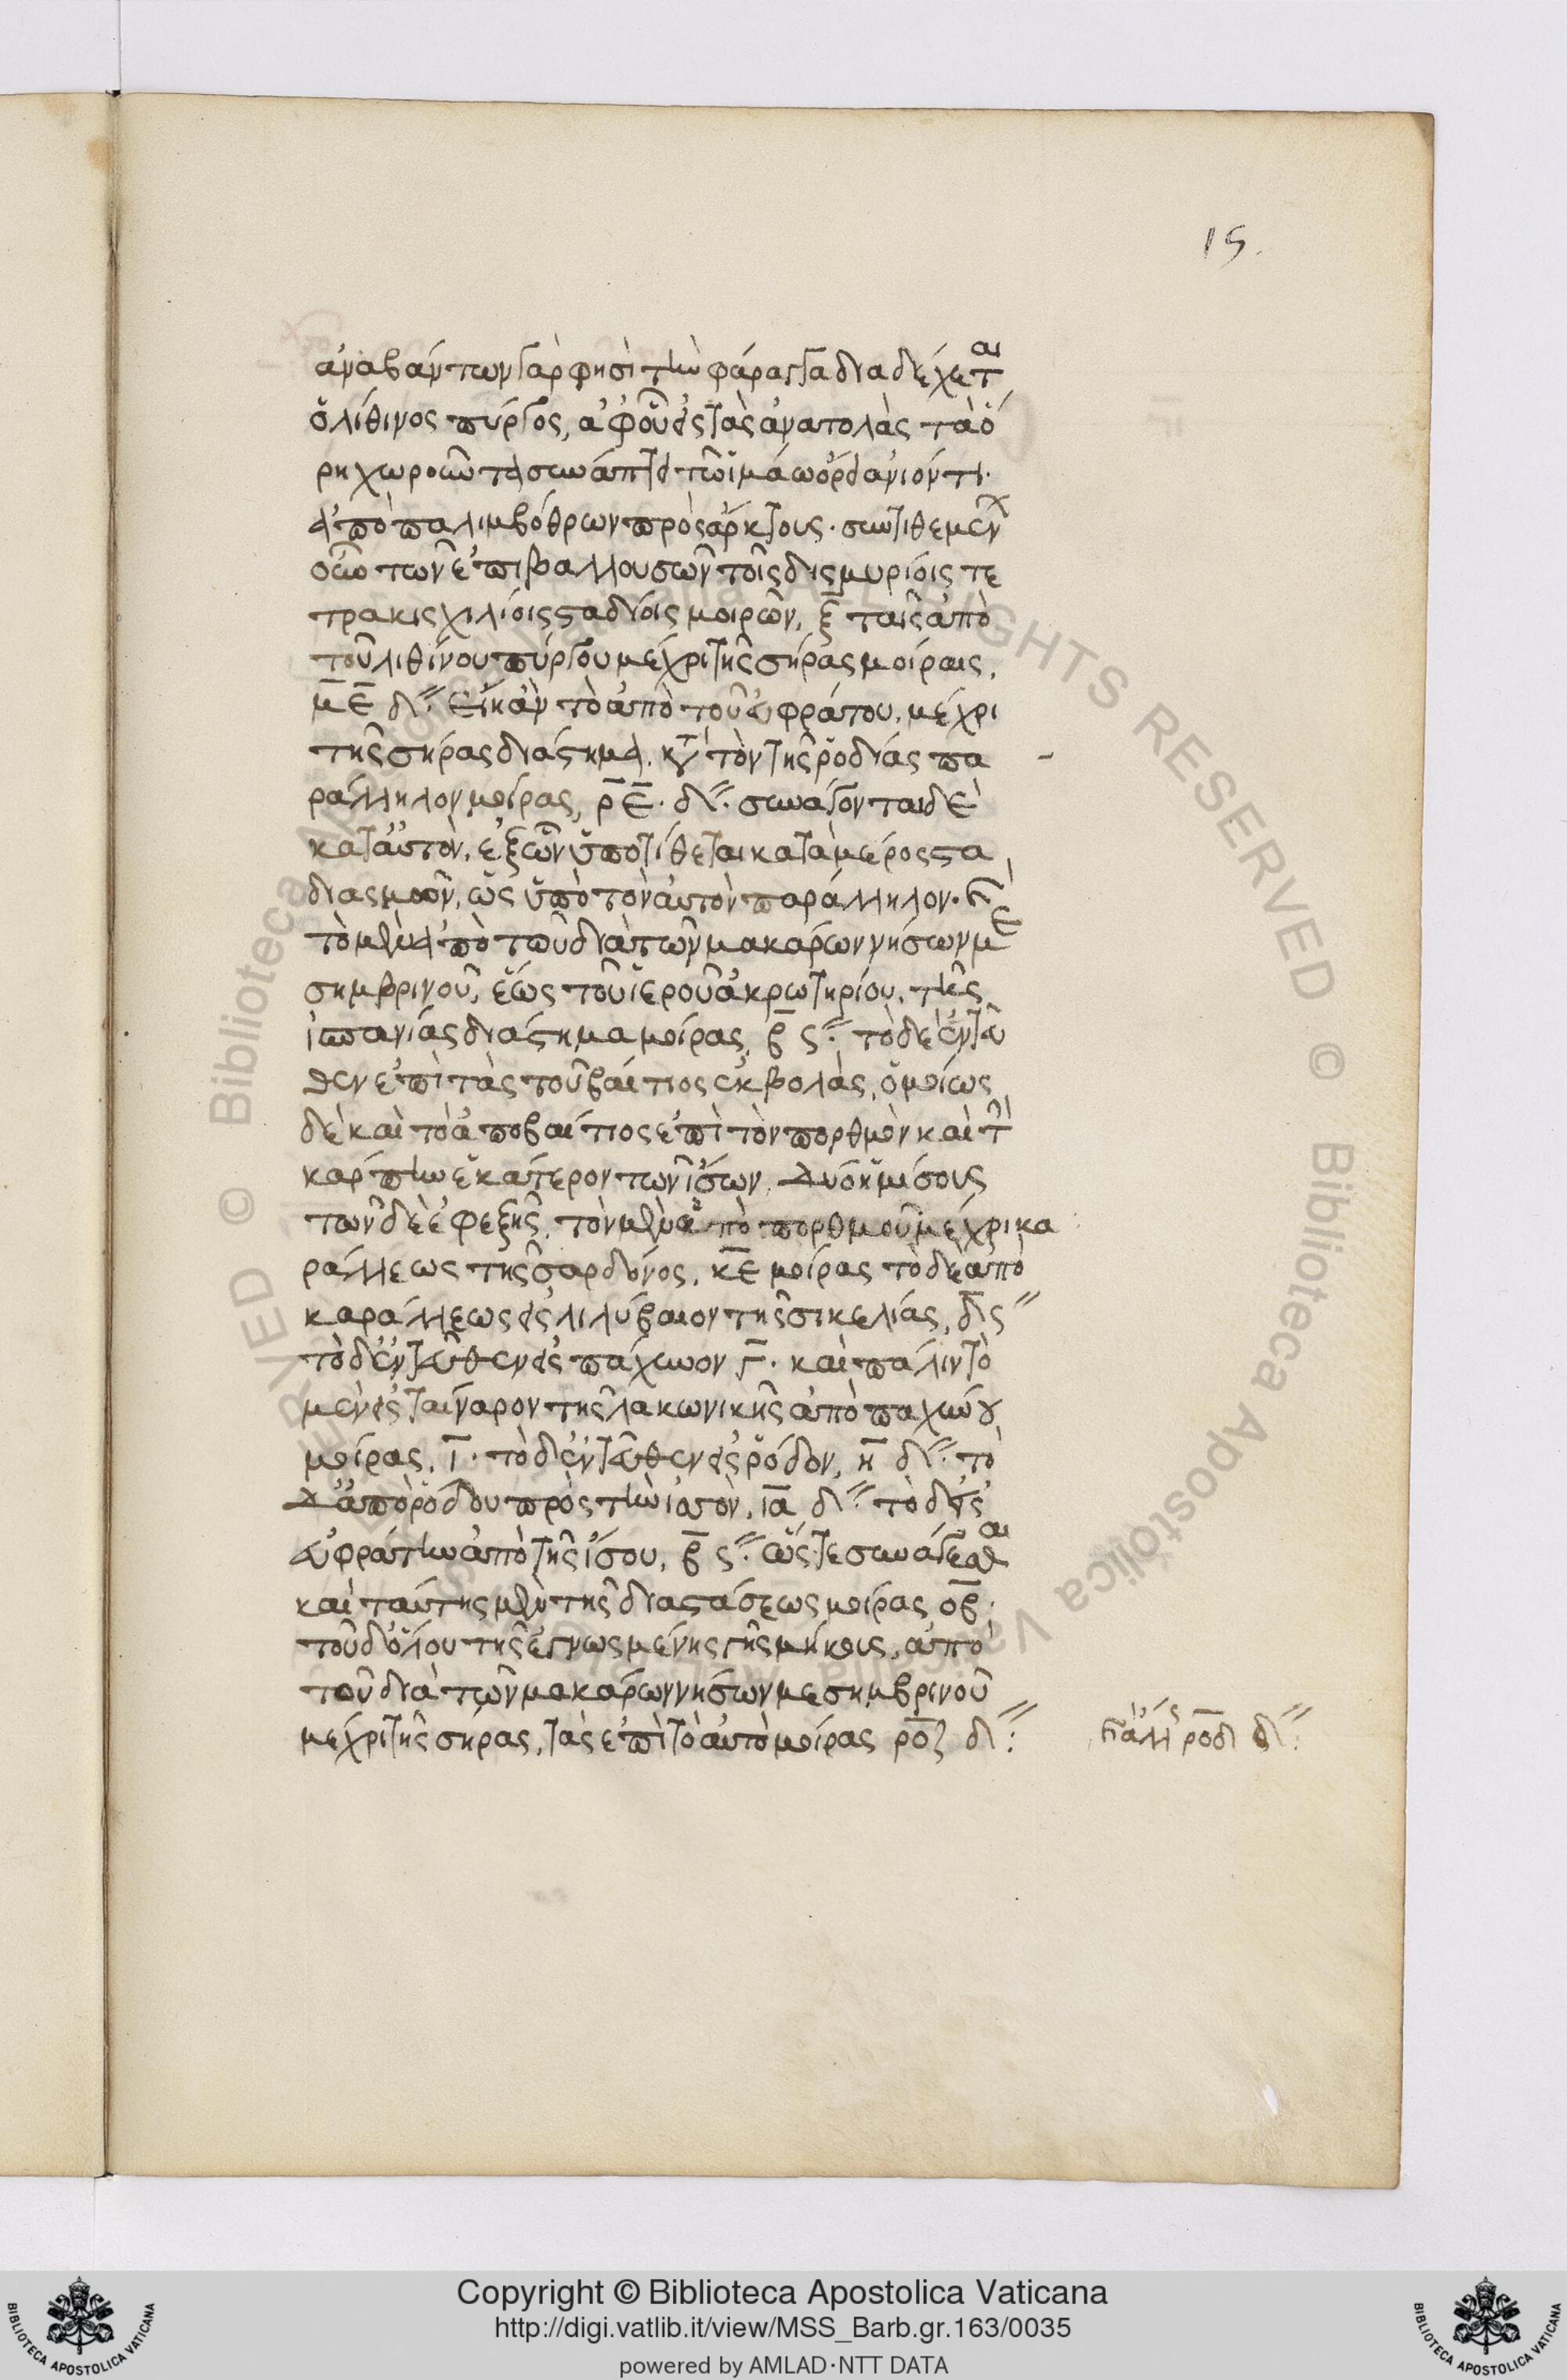 15.
ἀναβάντων γὰρ φησὶ τὴν φάραγγα διαδέχεται
ὁ λίθινος πύργος, ἀφ' οὗ εἰς τὰς ἀνατολὰς τὰ ὄ
ρη χωροῦντα συνάπτει τῷ ἰμάῳ ὄρει ἀνιόντι.
ἀπὸ παλιμβόθρων πρὸς ἄρκτους. συντιθεμέν
οὖν τῶν ἐπιβαλλουσῶν τοῖς δισμυρίοις τε
τρακισχιλίοις σταδίοις μοιρῶν, ξ ταῖς ἀπὸ
τοῦ λιθίνου πύργου μέχρι τῆς σήρας μοίραις,
με δ´´. εἴη ἂν τὸ ἀπὸ τοῦ εὐφράτου, μέχρι
τῆς σήρας διάστημα. κατὰ τὸν τῆς ῥοδίας πα
ράλληλον μοίρας, ρε. δ´´. συνάγονται δὲ
καὶ ἀφ' ὧν ὑποτίθεται κατὰ μέρος στα
διασμῶν, ὡς ὑπὸ τὸν αὐτὸν παράλληλον. καὶ
τὸ μὲν ἀπὸ τοῦ διὰ τῶν μακάρων νήσων με
σημβρινοῦ, ἕως τοῦ ἱεροῦ ἀκρωτηρίου, τῆς
ἱσπανίας διάστημα μοίρας, β ς´´. τὸ δὲ ἐντεῦ
θεν ἐπὶ τὰς τοῦ βαίτιος ἐκβολὰς, ὁμοίως
δὲ καὶ τὸ ἀπὸ βαίτιος ἐπὶ τὸν πορθμὸν καὶ τὴν
κάρπην ἑκάτερον τῶν ἴσων, δύο ἡμίσους
τῶν δὲ ἐφεξῆς, τὸν μὲν ἀπὸ πορθμοῦ μέχρι κα
ράλλεως τῆς σαρδόνος, κε μοίρας τὸ δὲ ἀπὸ
καράλλεως εἰς λιλύβαιον τῆς σικελίας, δ ς´´
τὸ δ' ἐντεῦθεν εἰς πάχυνον γ. καὶ πάλιν τὸ
μὲν εἰς ταίναρον τῆς λακωνικῆς ἀπὸ παχύνου
μοίρας, ι. τὸ δ' ἐντεῦθεν εἰς ῥόδον, η δ´´. τὸ
δ' ἀπὸ ῥόδου πρὸς τὴν ἰσσὸν, ια δ´´ τὸ δ' εἰς
εὐφράτην ἀπὸ τῆς ἴσου, β ς´´. ὥστε συνάγεσθαι
καὶ ταύτης μὲν τῆς διαστάσεως μοίρας οβ.
τοῦ δ' ὅλου τῆς ἐγνωσμένης γῆς μήκους, ἀπὸ
τοῦ διὰ τῶν μακάρων νήσων μεσημβρινοῦ
μέχρι τῆς σήρας, τὰς ἐπὶ τὸ αὐτὸ μοίρας ροζ δ´´:
ροδ δ´´:
Copyright © Biblioteca Apostolica Vaticana
http://digi.vatlib.it/view/MSS_Barb.gr.163/0035
powered by AMLAD·NTT DATA